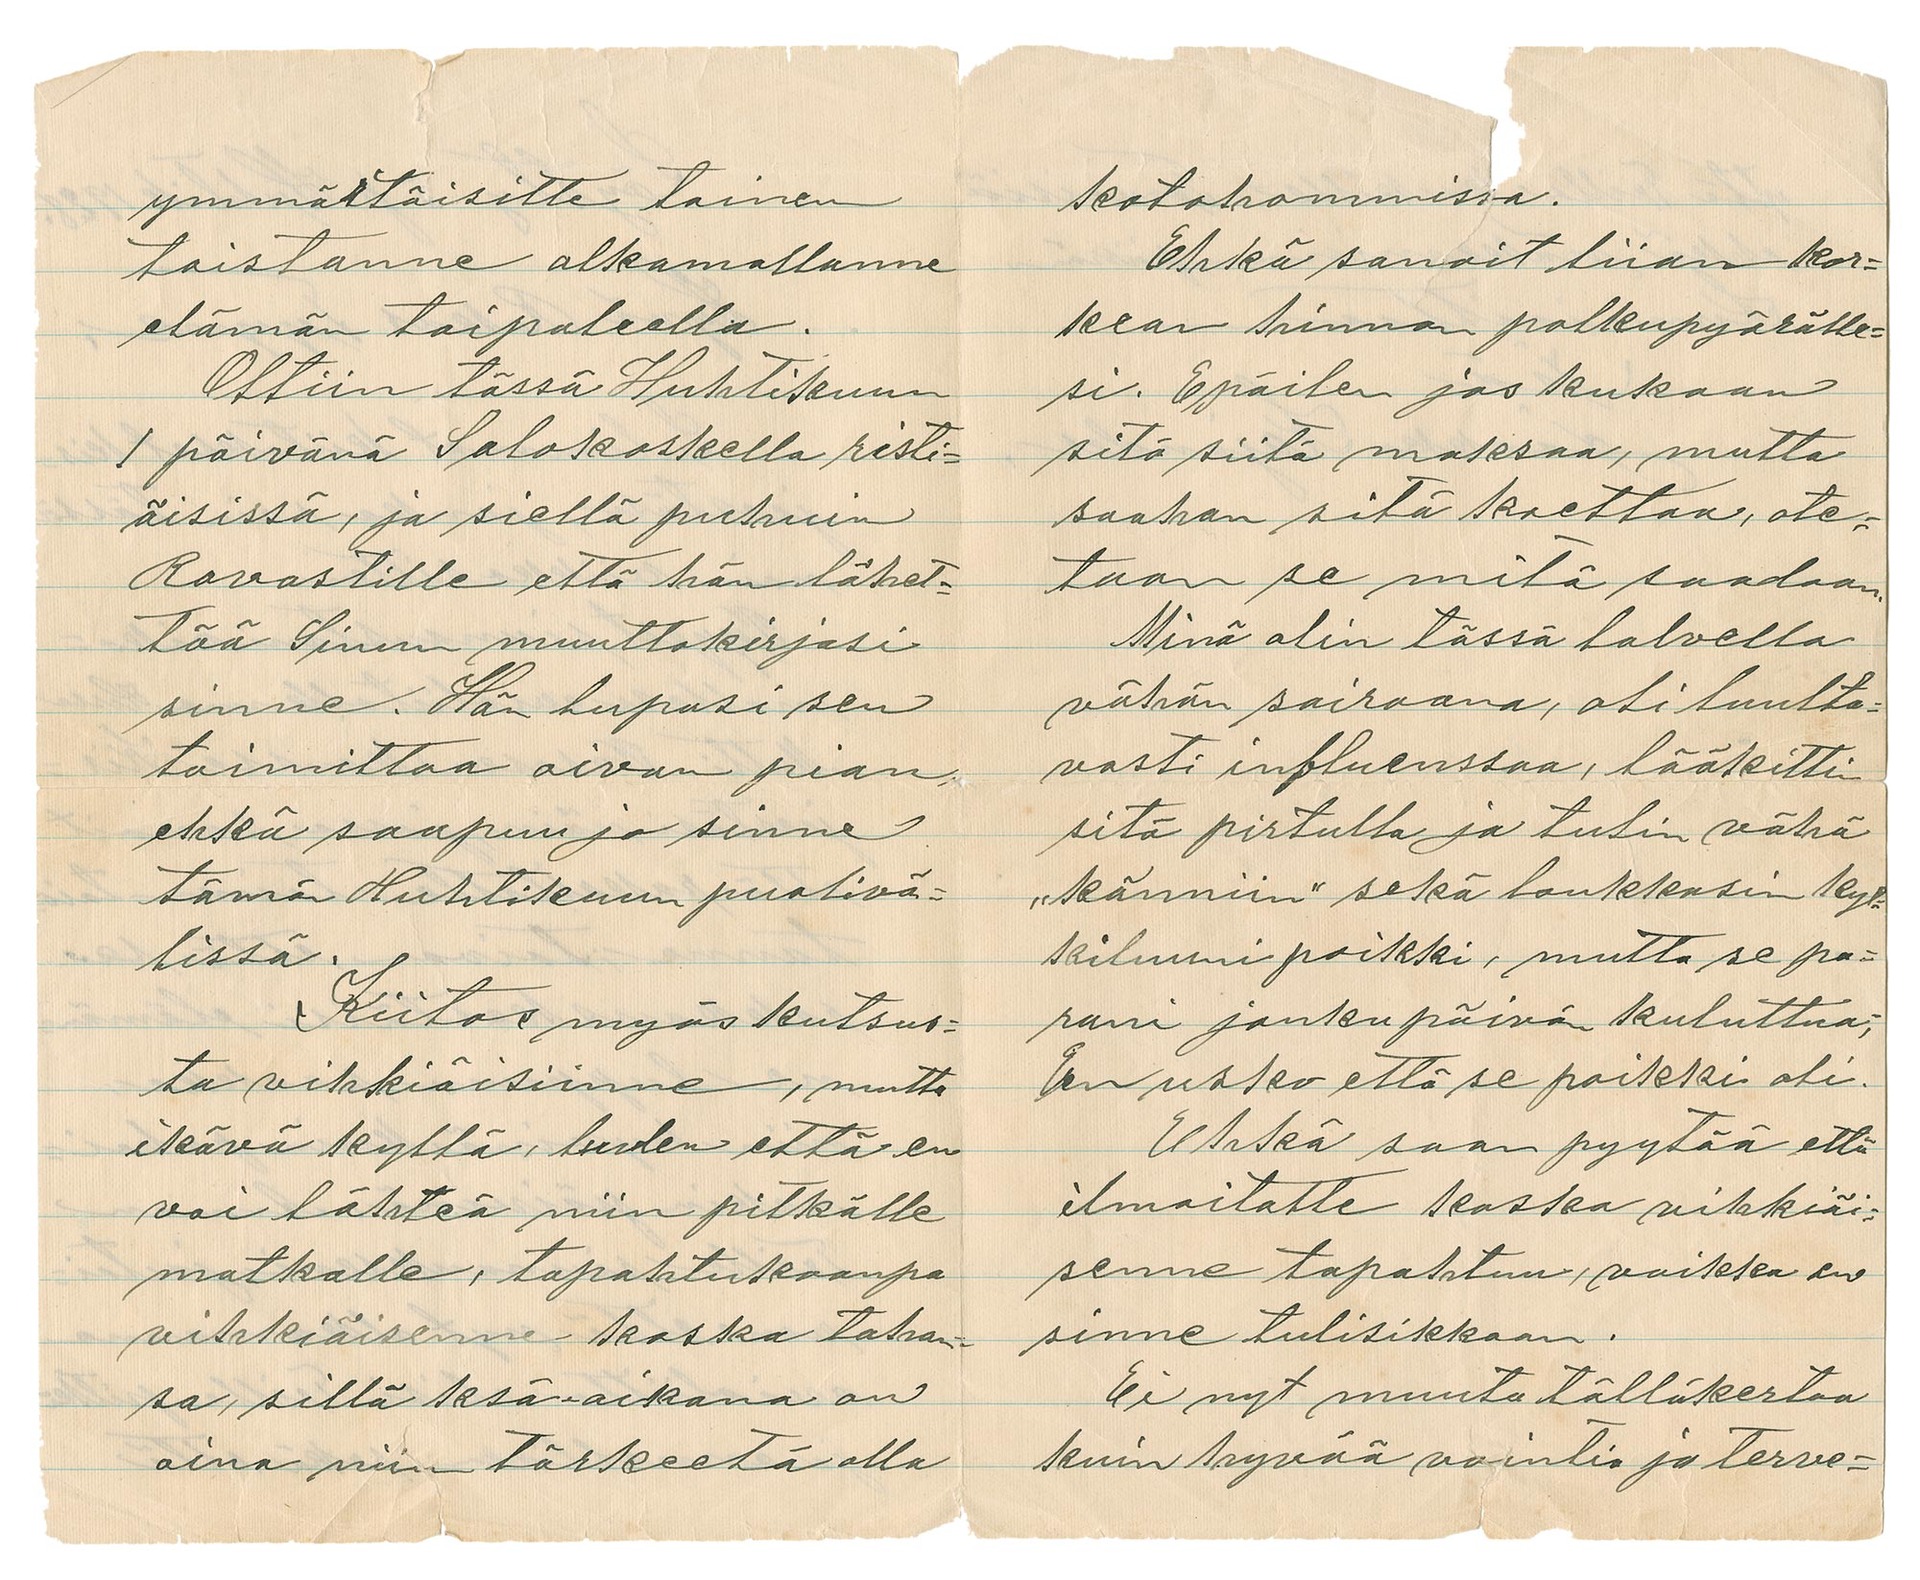 ymmärtäisitte toinen
toistanne alkamallanne
elämän taipaleella.
Oltiin tässä Huhtikuun
1 päivänä Salokoskella risti=
äisissä, ja siellä puhuin
Rovastille että hän lähet=
tää Sinun muuttokirjasi
sinne. Hän lupasi sen
toimittaa aivan pian,
ehkä saapuu jo sinne
tämän Huhtikuun puolivä=
lissä.
Kiitos myös kutsus=
ta vihkiäisiinne, mutta
ikävä kyllä, luulen että en
voi lähteä niin pitkälle
matkalle, tapahtukoonpa
vihkiäisenne koska tahan=
sa, sillä ksä-aikana on
aina niin tärkeetä olla
kotohommissa.
Ehkä sanoit liian kor=
kean hinnan polkupyörälle=
si. Epäilen jos kukaan
sitä siitä maksaa, mutta
saahan sitä koettaa, ote=
taan se mitä saadaan.
Minä olin tässä talvella
vähän sairaana, oli luulta=
vasti influenssaa, lääkittiin
sitä pirtulla ja tulin vähä
„känniin" sekä loukkasin kyl=
kiluuni poikki, mutta se pa=
rani jonku päivän kuluttua,
En usko että se poikki oli.
Ehkä saan pyytää että
ilmoitatte koska vihkiäi=
senne tapahtuu, vaikka en
sinne tulisikkaan.
Ei nyt muuta tälläkertaa
kuin hyvää vointia ja terve=